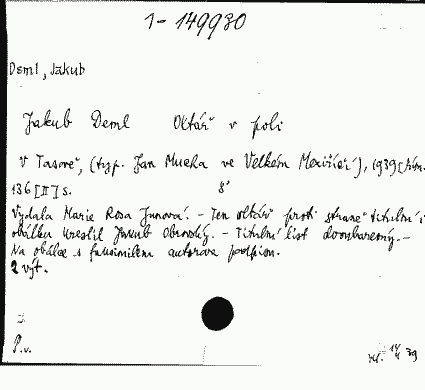 1-149930
Deml, Jakub
Jakub Deml Oltář v poli
V Tasově, (typ. Jan Mucha ve Velkém Meziříčí), 1939
136 [II] s. 8°
Vydala Marie Rosa Junová. – Ten oltář proti straně titulní i
obálku kreslil Jakub Obrovský. – Titulní list dvoubarevný. –
Na obálce s faksimilem autorova podpisu.
2 výt.
P.v.